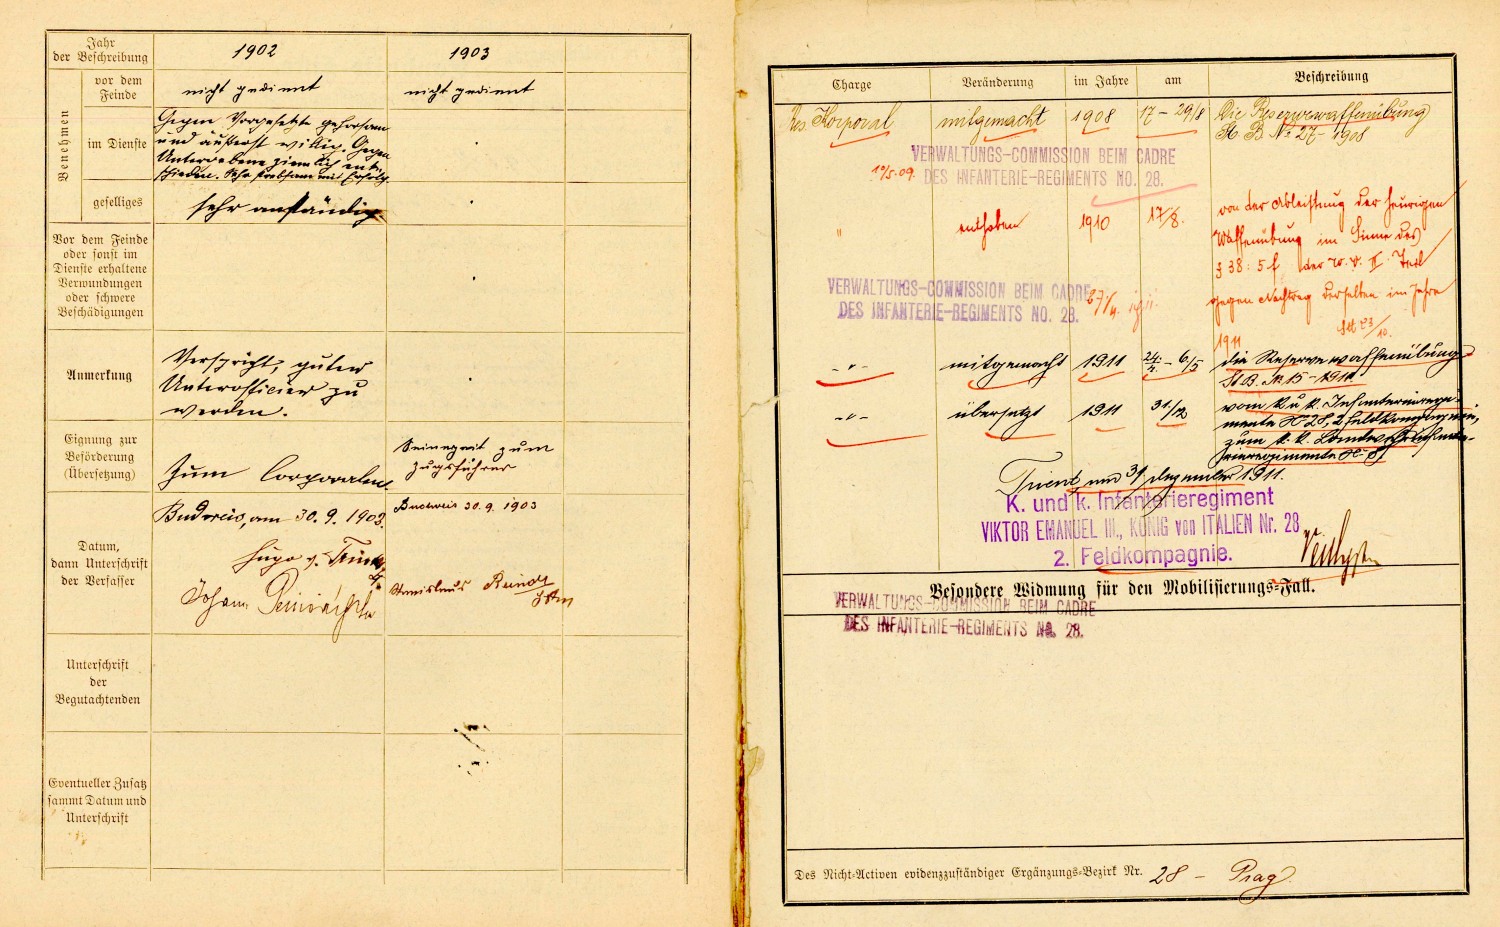 Jahr
der Beschreibung
1902
1903
Benehmen
vor dem
Feinde
nicht gedient
nicht gedient
im Dienste
Gegen Vorgesetzte gehorsam
und äußerst willig. Gegen
Untergebene ziemlich ent-
schieden. Sehr strebsam mit Erfolg.
geselliges
sehr anständig.
Vor dem Feinde
oder sonst im
Dienste erhaltene
Verwundungen
oder schwere
Beschädigungen
Anmerkung
Verspricht, guter
Unterofficier zu
werden.
Eignung zur
Beförderung
(Übersetzung)
Zum Corporalen.
Seinerzeit zum
Zugsführer
Datum,
dann Unterschrift
der Verfasser
Budweis, am 30. 9. 1902.
Budweis 30. 9. 1903
Hugo v.
Johann
Unterschrift
der
Begutachtenden
Eventueller Zusatz
sammt Datum und
Unterschrift
Charge
Veränderung
im Jahre
am
Beschreibung
Res. Korporal
mitgemacht
1908
17 – 29/8
Die Reservewaffenübung
H B № 27 – 1908
VERWALTUNGS-COMMISSION BEIM CADRE
DES INFANTERIE-REGIMENTS NO. 28.
10/5. 09.
"
enthoben
1910
17/8.
von der Ableistung der heurigen
Waffenübung im Sinne des
§ 38 : 5 f der W. V. II. Teil
gegen Nachtrag derselben im Jahre
1911
VERWALTUNGS-COMMISSION BEIM CADRE
DES INFANTERIE-REGIMENTS NO. 28.
-"-
mitgemacht
1911
24/4. – 6/5
die Reservewaffenübung
H.B. № 15 – 1911.
-"-
übersetzt
1911
31/12
vom k. u. k. Infanterieregi-
mente № 28, 2. Feldkompagnie,
zum k. k. Landwehrinfante-
rieregimente № 8
Trient, am 31. Dezember 1911.
K. und k. Infanterieregiment
VIKTOR EMANUEL III., KÖNIG von ITALIEN Nr. 28
2. Feldkompagnie.
Besondere Widmung für den Mobilisierungs-Fall.
VERWALTUNGS-COMMISSION BEIM CADRE
DES INFANTERIE-REGIMENTS NO. 28.
Des Nicht-Activen evidenzzuständiger Ergänzungs-Bezirk Nr. 28 – Prag.